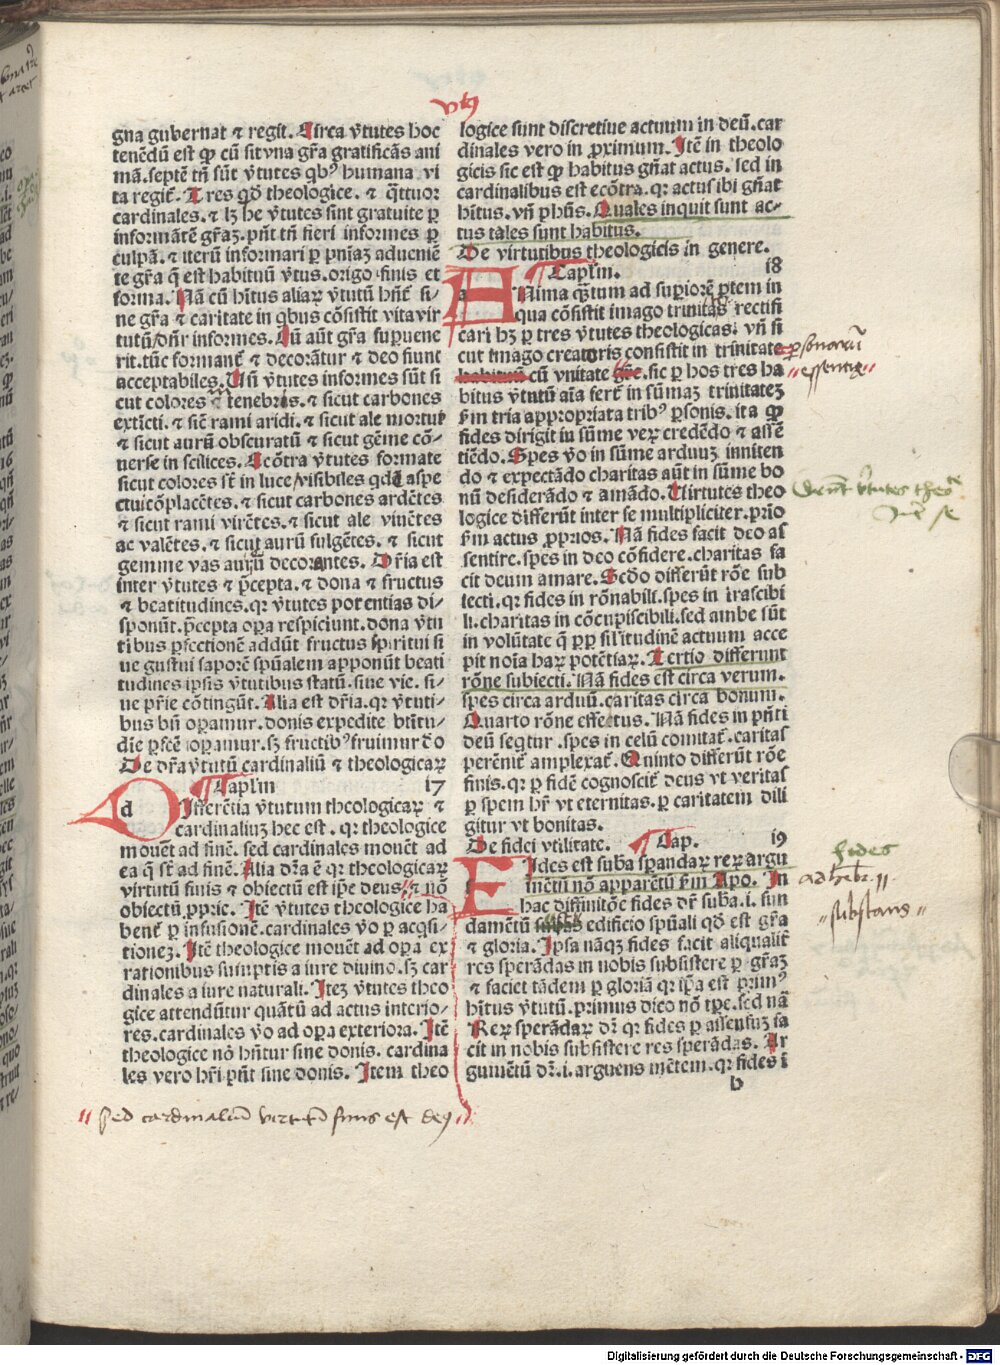 vtꝫ
gna gubernat ⁊ regit. Circa v̓tutes hoc
tenēdū est ꝙ cū sit vna gr̄a gratificās ani
mā. septē tn̄ sūt v̓tutes qb᷒ humana vi
ta regit᷑. Tres qd̓ theologice. ⁊ q̄ttuor
cardinales. ⁊ lꝫ he v̓tutes sint gratuite ꝑ
informātē gr̄aꝫ. pn̄t tn̄ fieri informes ꝑ
culpā. ⁊ iterū informari ꝑ pn̄iaꝫ aduenie
te gr̄a q̄ est habituū v̓tus. origo finis et
forma. Nā cū hītus aliaꝝ v̓tutū hn̄t si-
ne gr̄a ⁊ caritate in qbus cōsistit vita vir
tutū/dn̄r informes. Cū aūt gr̄a suꝑuene
rit. tūc formant᷑ ⁊ decorātur ⁊ deo fiunt
acceptabiles. Vn̄ v̓tutes informes sūt si
cut colores in tenebris. ⁊ sicut carbones
extīcti. ⁊ sic̄ rami aridi. ⁊ sicut ale mortui
⁊ sicut aurū obscuratū ⁊ sicut gēme cō-
uerse in scilices. Ecōtra v̓tutes formate
sicut colores st̄ in luce/visibiles qd̓ aspe
ctui cōplacētes. ⁊ sicut carbones ardētes
⁊ sicut rami virētes. ⁊ sicut ale viuētes
ac valētes. ⁊ sicut aurū fulgētes. ⁊ sicut
gemme vas auꝛū decorantes. Dr̄ia est
inter v̓tutes ⁊ p̄cepta. ⁊ dona ⁊ fructus
⁊ beatitudines. qꝛ v̓tutes potentias di-
sponūt. p̄cepta oꝑa respiciunt. dona v̓tu
tibus ꝑfectionē addūt fructus spiritui si
ue gustui saporē spūalem apponūt beati
tudines ipsis v̓tutibus statū. siue vie. si-
ue pr̄ie cōtingūt. Alia est dr̄ia. qꝛ v̓tuti-
bus bn̄ oꝑamur. donis expedite btītu-
die ꝑfcē oꝑamur. sꝫ fructib᷒ fruimur d̓o
De dr̄a v̓tutū cardinaliū ⁊ theologicaꝝ
¶ Capl̓m 17
d Ifferētia v̓tutum theologicaꝝ ⁊
cardinaliuꝫ hec est. qꝛ theologice
mouēt ad finē. sed cardinales mouēt ad
ea q̄ st̄ ad finē. Alia dr̄a ē qꝛ theologicaꝝ
virtutū finis ⁊ obiectū est ip̄e deus, ⁊ nō
obiectū ꝓprie. Itē v̓tutes theologice ha
bent᷑ ꝑ infusionē. cardinales v̓o ꝑ acqsi-
tioneꝫ. Itē theologice mouēt ad oꝑa ex
rationibus sumptis a iure diuino. sꝫ car
dinales a iure naturali. Iteꝫ v̓tutes theo
gice attendūtur quātū ad actus interio-
res. cardinales v̓o ad oꝑa exteriora. Itē
theologice nō hn̄tur sine donis. cardina
les vero hr̄i pn̄t sine donis. Item theo
// Sed cardinaliū virtutū finis est deꝯ //
logice sunt discretiue actuum in deū. car
dinales vero in ꝓximum. Itē in theolo
gicis sic est ꝙ habitus gn̄at actus. sed in
cardinalibus est ecōtra. qꝛ actus ibi gn̄at
hītus. vn̄ ph̄us. Quales inquit sunt ac-
tus tales sunt habitus.
De virtutibus theologicis in genere.
¶ Capl̓m. 18
a Nima q̄tum ad suꝑiorē ꝑtem in
qua cōsistit imago trinitatꝭ rectifi
cari hꝫ ꝑ tres v̓tutes theologicas. vn̄ si
cut imago creatoris consistit in trinitate ꝑsonarū
cū vnitate // essentie //
sic ꝑ hos tres ha
bitus v̓tutū aīa fert᷑ in sūmaꝫ trinitateꝫ
ẜm tria appropriata trib᷒ ꝑsonis. ita ꝙ
fides dirigit in sūme veꝝ credēdo ⁊ assē
tiēdo. Spes v̓o in sūme arduuꝫ inniten
do ⁊ expectādo charitas aūt in sūme bo
nū desiderādo ⁊ amādo. Uirtutes theo
logice differūt inter se multipliciter. prio
ẜm actus ꝓprios. Nā fides facit deo as
sentire. spes in deo cōfidere. charitas fa
cit deum amare. Scd̓o differūt rōe sub
iecti. qꝛ fides in rōnabili. spes in irascibi
li. charitas in cōcupiscibili. sed ambe sūt
in volūtate q̄ ꝓpꝫ sil̓itudinē actuum acce
pit noīa haꝝ potētiaꝝ. Tertio differunt
rōne subiecti. Nā fides est circa verum.
spes circa arduū. caritas circa bonum.
Quarto rōne effectus. Nā fides in pn̄ti
deū seqtur. spes in celū comitat᷑. caritas
perēnit᷑ amplexat᷑. Quinto differūt rōe
finis. qꝛ ꝑ fidē cognoscit᷑ deus vt veritas
ꝑ spem hr̄ vt eternitas. ꝑ caritatem dili
gitur vt bonitas.
De fidei vtilitate. ¶ Cap. 19
f Ides est suba sꝑandaꝝ reꝝ argu
mētū nō apparētū ẜm Apo. In ad hebr. 11.
hac diffinitōe fides dr̄ suba. i. fun
damētū edificio spūali qd̓ est gr̄a
⁊ gloria. Ipsa nāqꝫ fides facit aliqualit᷑
res sperādas in nobis subsistere ꝑ gr̄aꝫ
⁊ faciet tādem ꝑ gloriā qꝛ ip̄a est prim᷒
hītus v̓tutū. primus dico nō tꝑe. sed nā
Reꝝ sperādaꝝ dr̄ qꝛ fides ꝑ assensuꝫ fa
cit in nobis subsistere res sperādas. Ar
gumētū dr̄. i. arguens mētem. qꝛ fides ī
b
v̓tutes theo
fides
// substans //
Digitalisierung gefördert durch die Deutsche Forschungsgemeinschaft - DFG